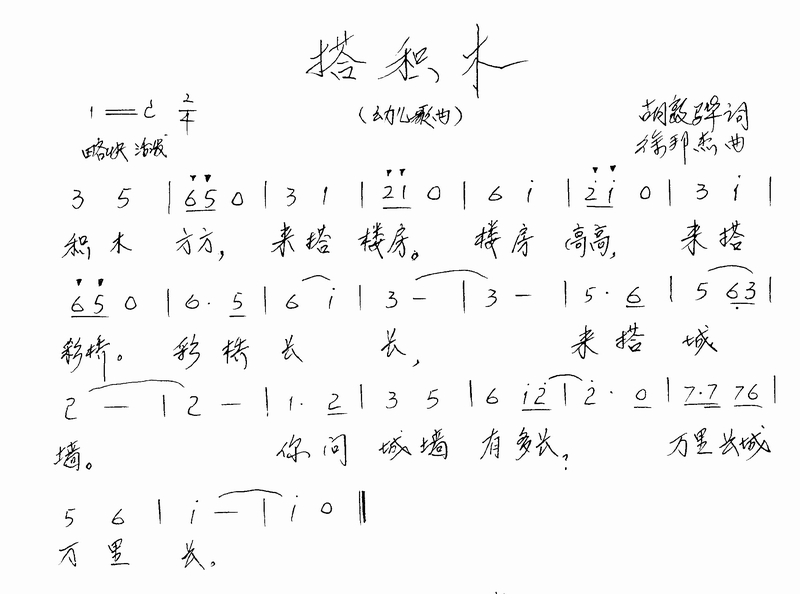 搭积木
1=C 2/4
(幼儿歌曲)
胡敦骅词
略快 活泼
徐邦杰曲
3 5 | 6 5 0 | 3 1 | 2 1 0 | 6 i | 2̇ i 0 | 3 i |
积木 方方, 来搭 楼房。 楼房 高高, 来搭
6 5 0 | 6· 5 | 6 i | 3 — | 3 — | 5· 6 | 5 6 3 |
彩桥。 彩桥 长 长, 来搭 城
2 — | 2 — | 1· 2 | 3 5 | 6 i 2̇ | 2̇· 0 | 7·7 7 6 |
墙。 你问 城墙 有多长? 万里长城
5 6 | i — | i 0 ‖
万里 长。